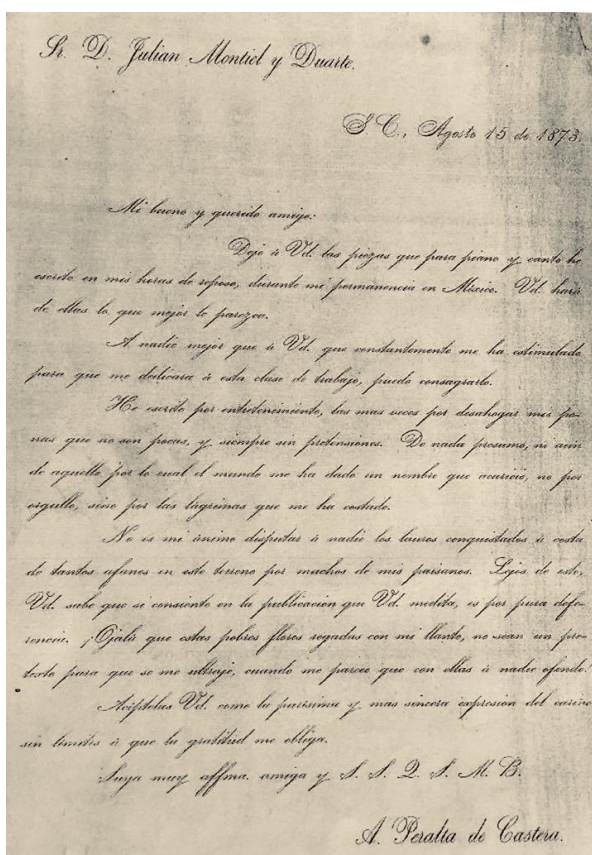 Sr. D. Julian Montiel y Duarte.
S. C., Agosto 15 de 1873.
Mi bueno y querido amigo:
Dejo á Vd. las piezas que para piano y canto he
escrito en mis horas de reposo, durante mi permanencia en México. Vd. hará
de ellas lo que mejor le parezca.
A nadie mejor que á Vd. que constantemente me ha estimulado
para que me dedicara á esta clase de trabajo, puedo consagrarlo.
He escrito por entretenimiento, las mas veces por desahogar mis pe-
nas que no son pocas, y siempre sin pretensiones. De nada presumo, ni aún
de aquello por lo cual el mundo me ha dado un nombre que acaricio, no por
orgullo, sino por las lágrimas que me ha costado.
No es mi ánimo disputar á nadie los lauros conquistados á costa
de tantos afanes en este terreno por muchos de mis paisanos. Lejos de esto,
Vd. sabe que si consiento en la publicacion que Vd. medita, es por pura defe-
rencia. ¡Ojalá que estas pobres flores regadas con mi llanto, no sean un pre-
texto para que se me ultraje, cuando me parece que con ellas á nadie ofendo!
Acéptelas Vd. como la purísima y mas sincera expresion del cariño
sin límites á que la gratitud me obliga.
Suya muy affma. amiga y S. S. Q. S. M. B.
A. Peralta de Castera.